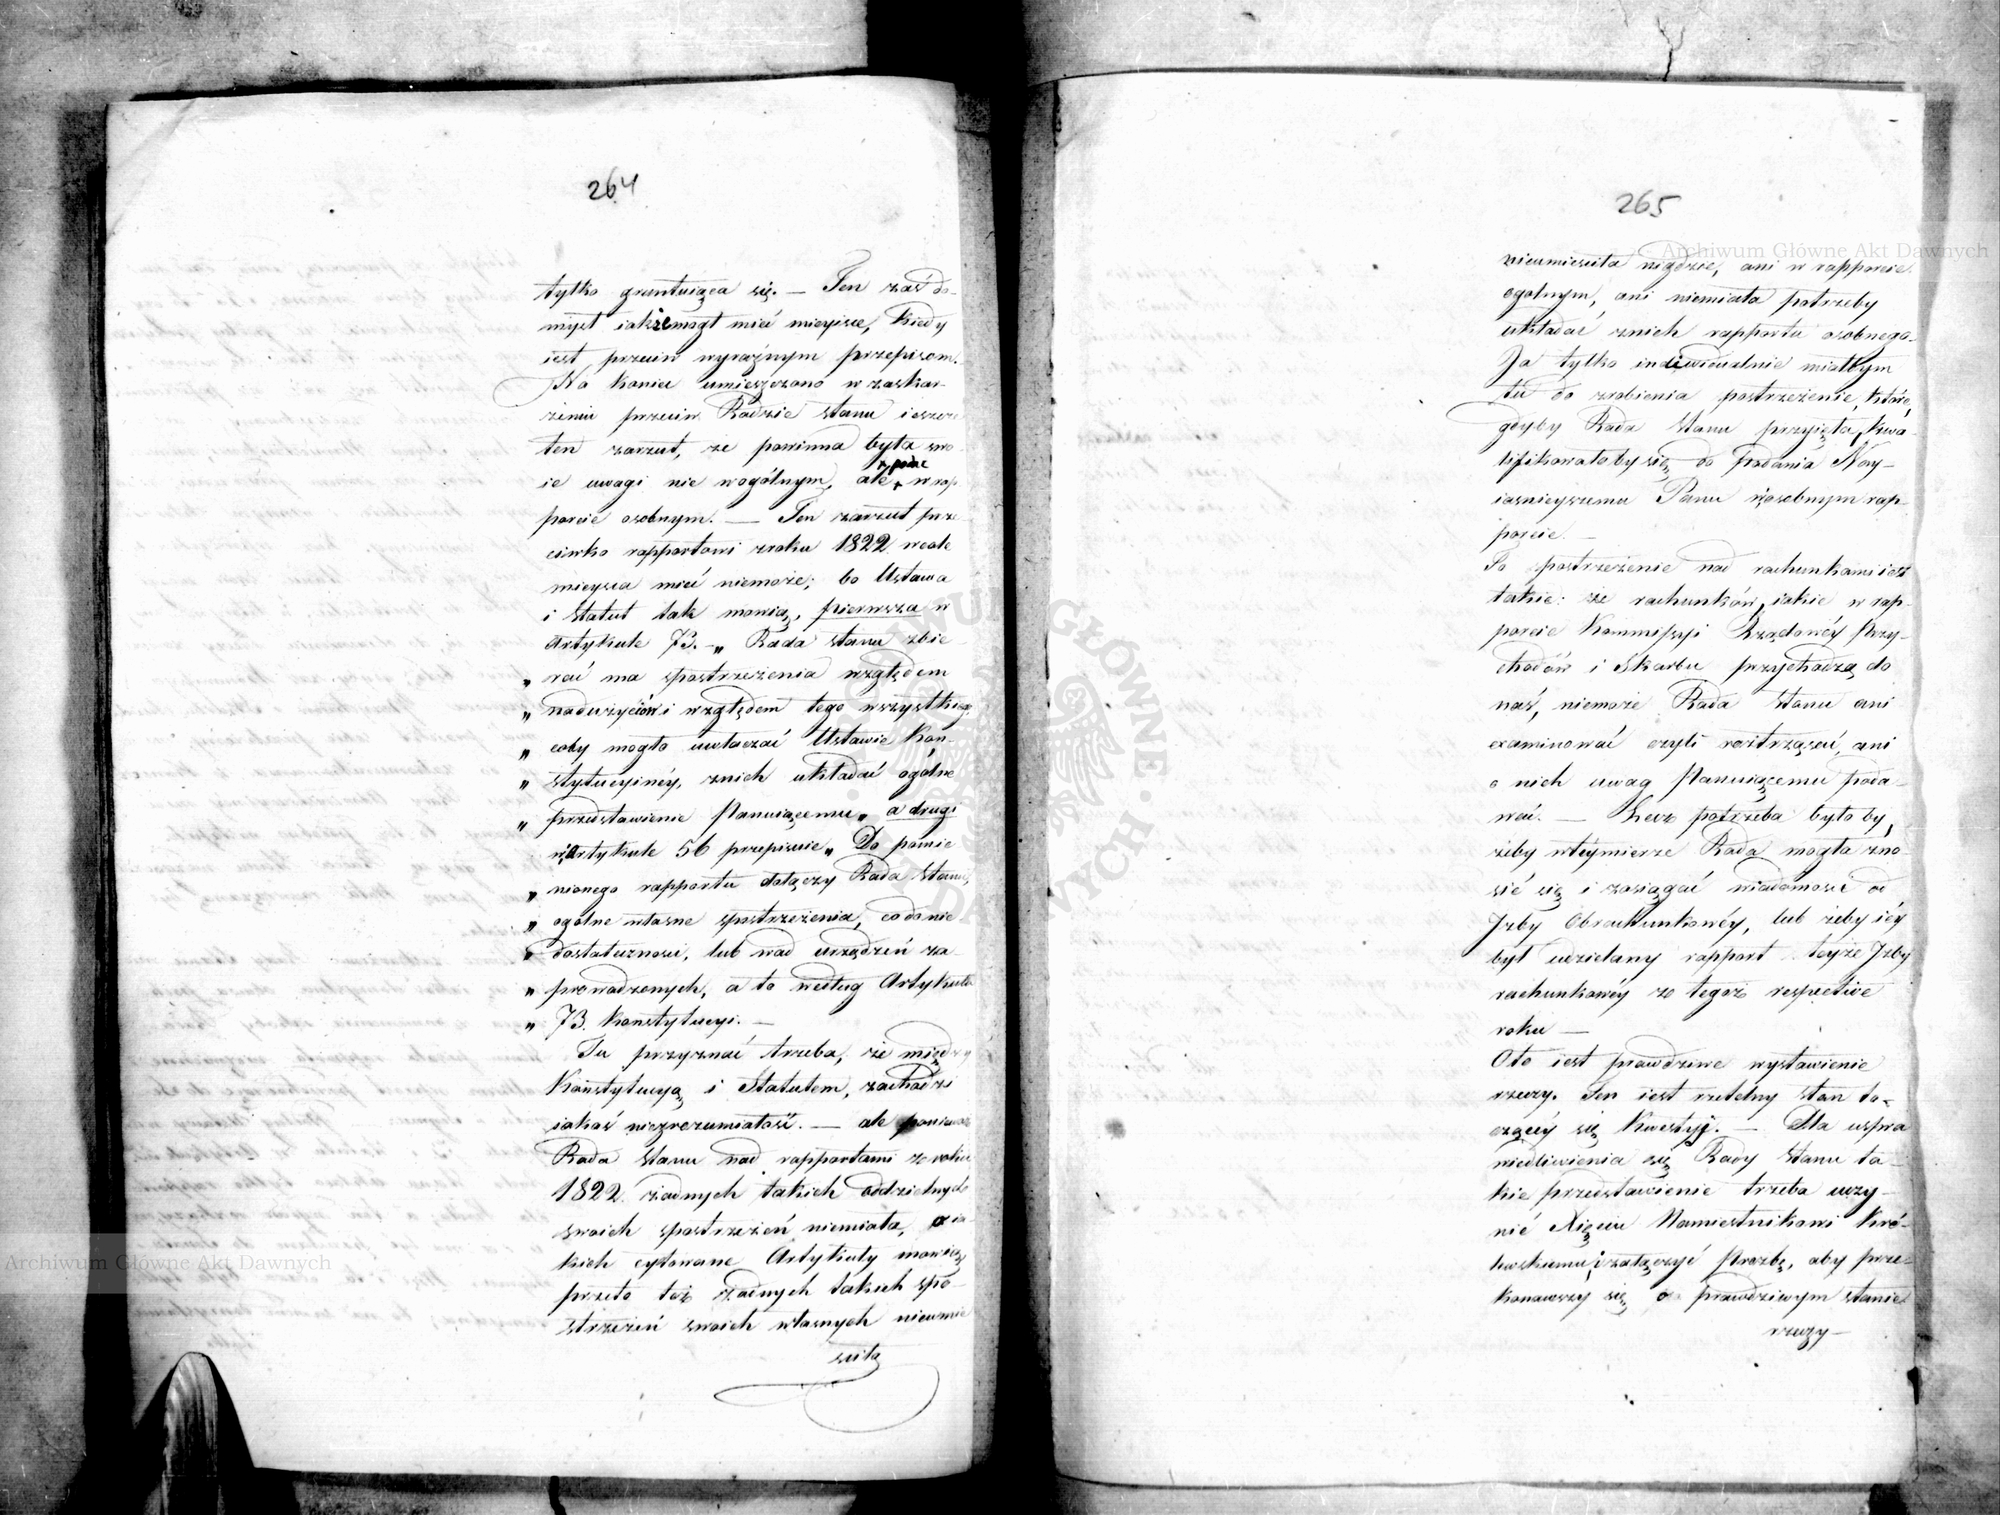 264
tylko gruntuiąca się. — Ten zaś do-
mysł iakżemógł mieć mieysce, kiedy
iest przeciw wyraźnym przepisom.
Na koniec umieszczono w zaskar-
żeniu przeciw Radzie Stanu ieszcze
ten zarzut, że powinna była swo-
ie uwagi nie wogólnym, ale w rap-
porcie osobnym. — Ten zarzut prze-
ciwko rapportowi zroku 1822 wcale
mieysca mieć niemoże; bo Ustawa
i Statut tak mówią, pierwsza w
Artykule 73. „ Rada Stanu zbie-
„ rać ma spostrzeżenia względem
„ nadużyciów i względem tego wszystkiego,
„ coby mogło uwłaczać Ustawie Kon-
„ stytucyinéy, znich układać ogólne
„ przedstawienie Panuiącemu„ a drugi
w Artykule 56 przepisuie „ Do pomie-
„ nionego rapportu dołączy Rada Stanu,
„ ogólne własne spostrzeżenia, co do nie-
„ dostateczności, lub wad urządzeń za-
„ prowadzonych, a to według Artykułu
„ 73. Konstytucyi. —
Tu przyznać trzeba, że między
Konstytucyą i Statutem, zachodzi
iakaś niezrozumiałość. — ale ponieważ
Rada Stanu nad rapportami z roku
1822. żadnych takich oddzielnych
swoich spostrzeżeń niemiała, o ia-
kich cytowane Artykuły mówią,
przeto też żadnych takich spo-
strzeżeń swoich własnych nieumie-
ściła
265
nieumieściła nigdzie, ani w rapporcie
ogólnym, ani niemiała potrzeby
układać znich rapportu osobnego.
Ja tylko indiwidualnie miałbym
tu do zrobienia postrzeżenie, które,
gdyby Rada Stanu przyięła, kwa-
lifikowałoby się do podania Nay-
iaśnieyszemu Panu wosobnym rap-
porcie. —
To postrzeżenie nad rachunkami iest
takie: że rachunków, iakie w rap-
porcie Kommissyi Rządowéy Przy-
chodów i Skarbu przychodzą do
nas, niemoże Rada Stanu ani
examinować czyli roztrząsać, ani
o nich uwag Panuiącemu poda-
wać. — Lecz potrzeba byłoby,
żeby wtéymierze Rada mogła zno-
sić się i zasiągać wiadomości od
Izby Obrachunkowéy, lub żeby iéy
był udzielany rapport teyże Izby
rachunkowéy z tegoż respective
roku —
Oto iest prawdziwe wystawienie
rzeczy. Ten iest rzetelny stan to-
czącéy się kwestyi. — Dla uspra-
wiedliwienia się Rady Stanu ta-
kie przedstawienie trzeba uczy-
nić Xięciu Namiestnikowi Kró-
lewskiemu, i załączyć prośbę, aby prze-
konawszy się o prawdziwym stanie
rzeczy —
Archiwum Główne Akt Dawnych
Archiwum Główne Akt Dawnych